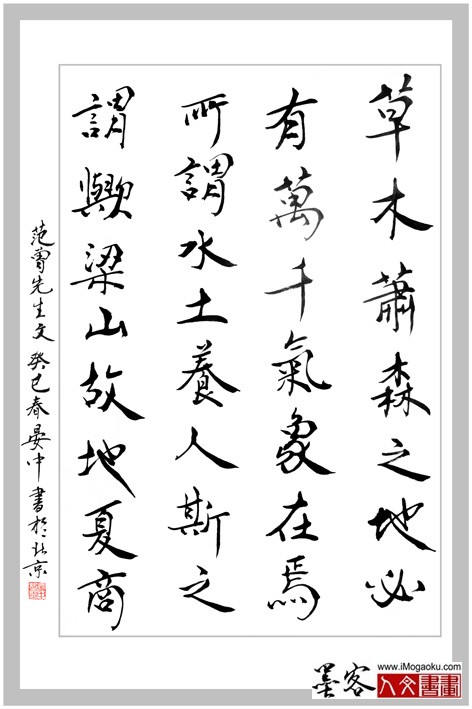 草木蕭森之地必
有萬千氣象在焉
所謂水土養人斯之
謂歟梁山故地夏商
范曾先生文癸巳春晏中書於北京
www.iMogaoku.com
墨客
人文書畫